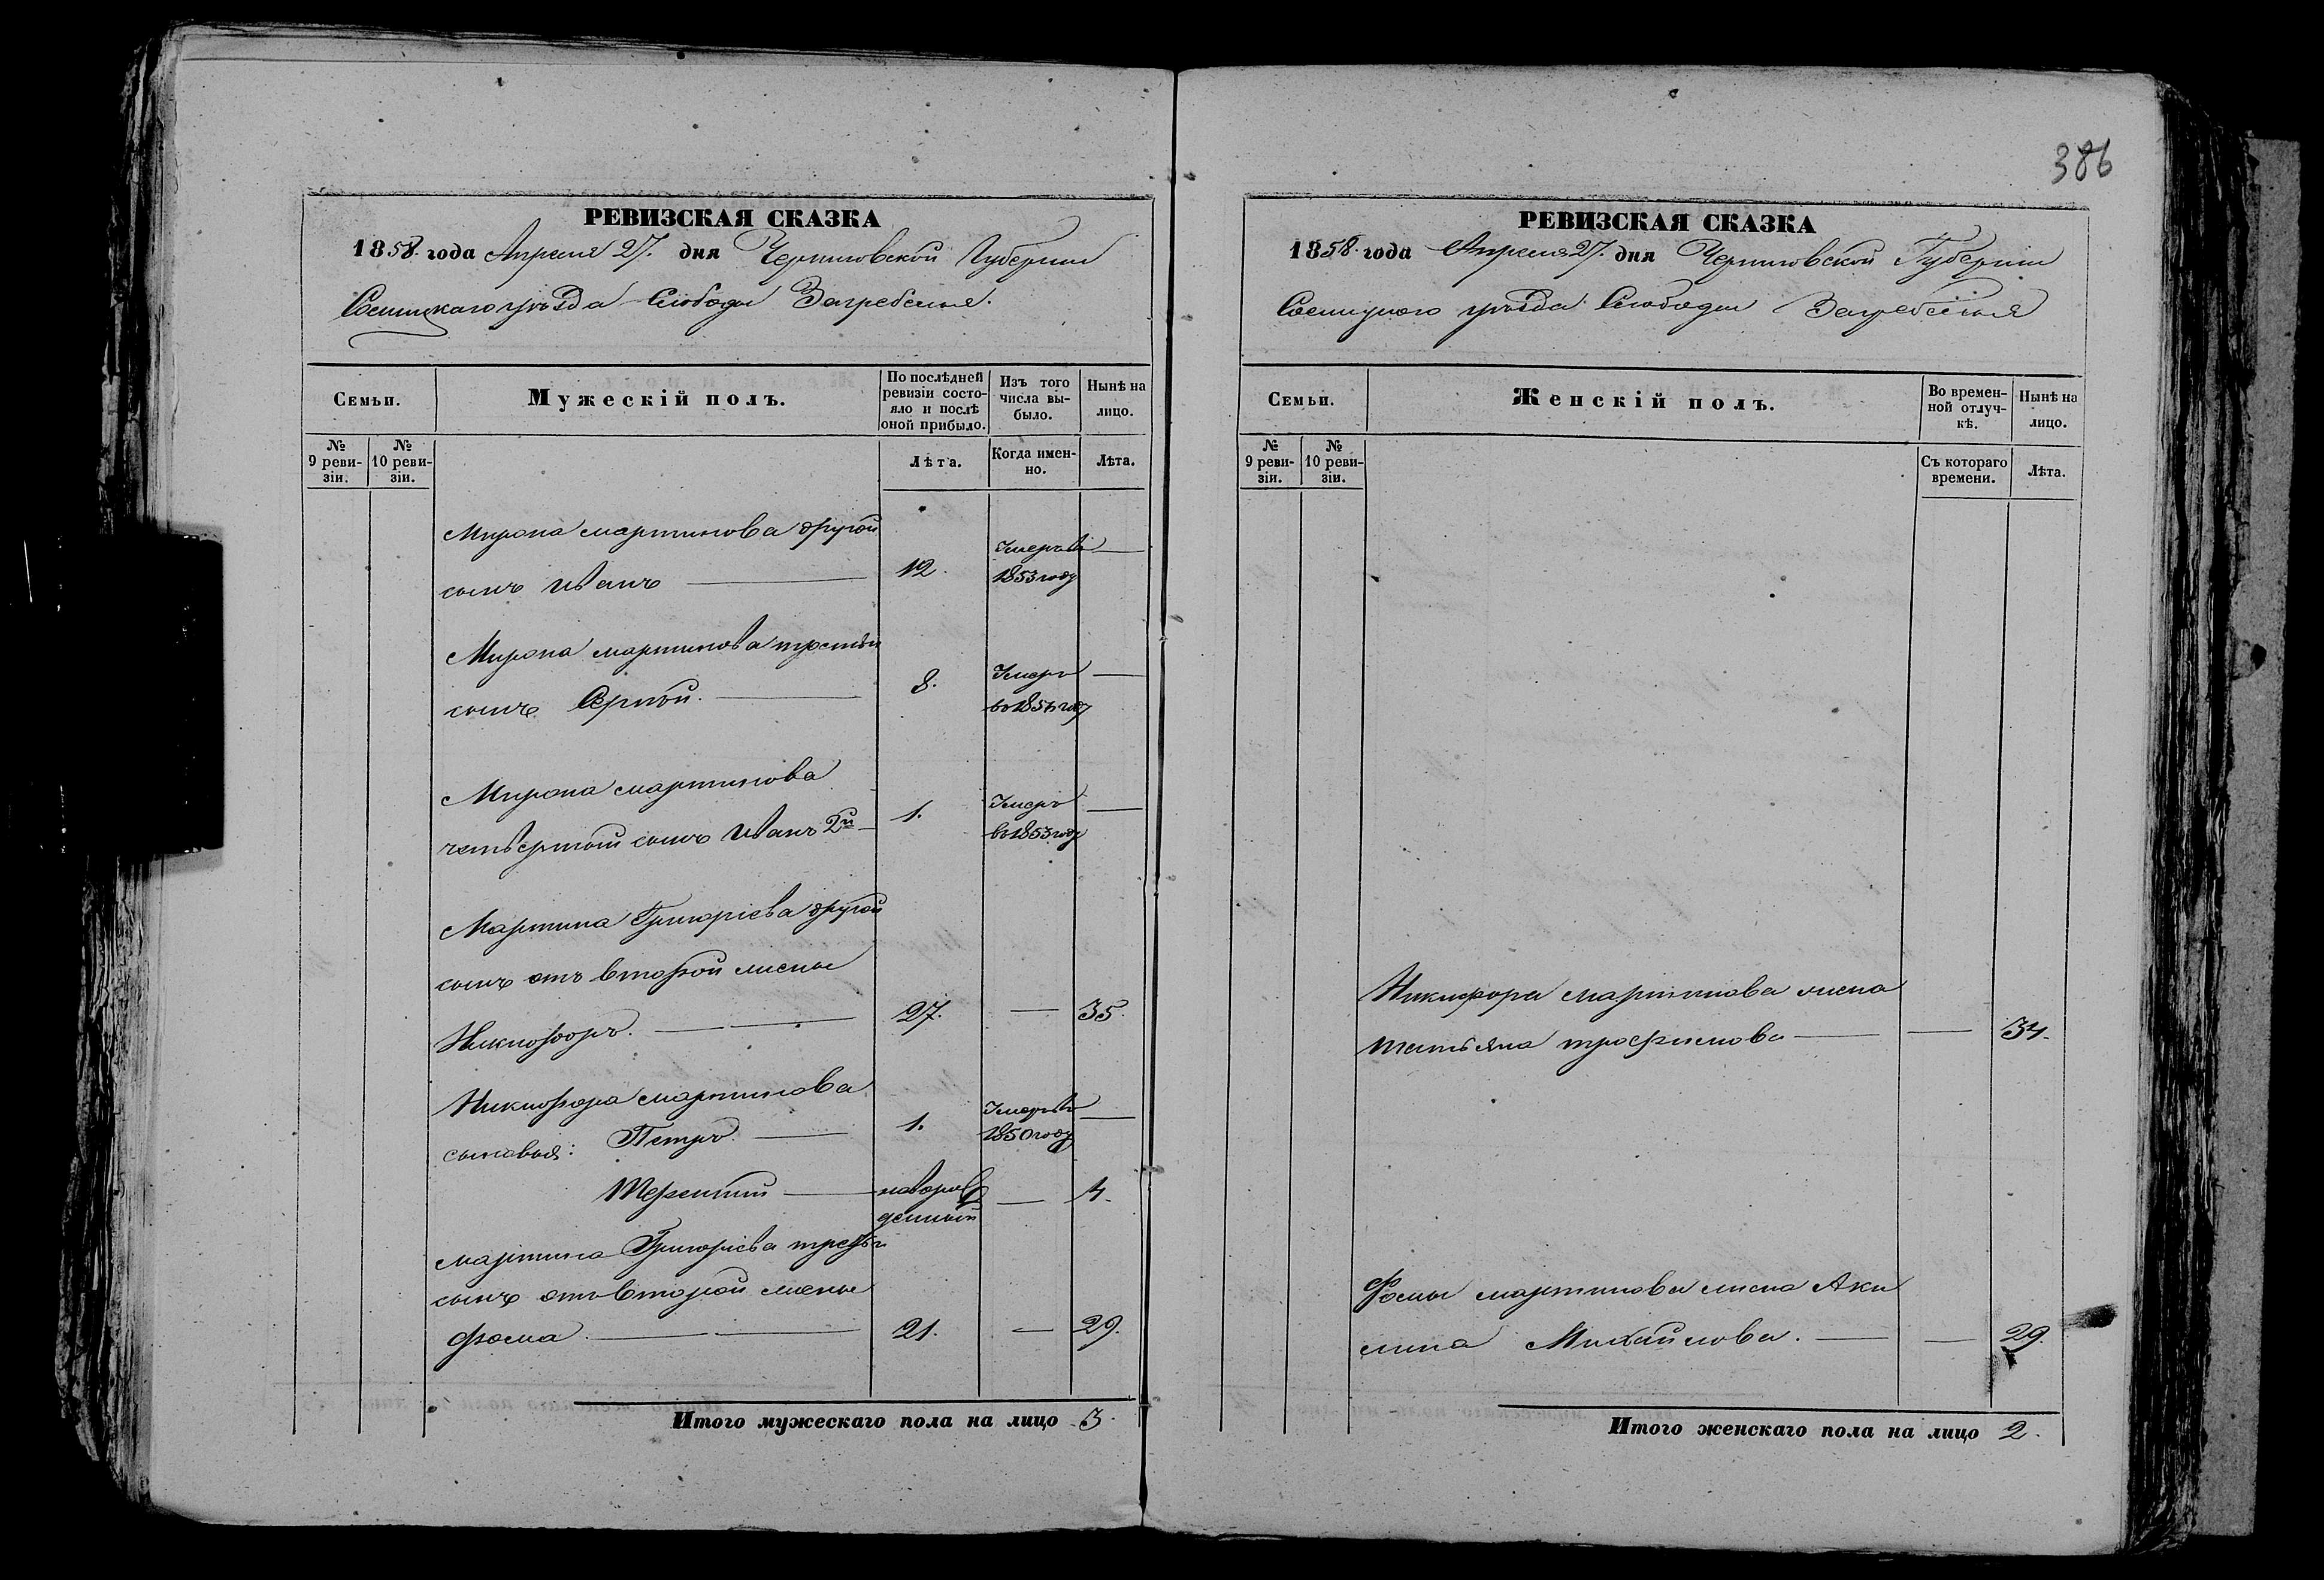 386
РЕВИЗСКАЯ СКАЗКА
1858. года Апреля 27. дня Черниговской Губернии
Сосницкаго уѣзда Слободы Загребелья.
Семьи.
Мужескій полъ.
По послѣдней ревизіи состояло и послѣ оной прибыло.
Изъ того числа выбыло.
Нынѣ на лицо.
№ 9 ревизіи.
№ 10 ревизіи.
Лѣта.
Когда именно.
Лѣта.
Мирона мартинова другой
сынъ Иванъ — 12. Умеръ въ 1853 году —
Мирона мартинова третій
сынъ Сергѣй. — 8. Умеръ во 1854 году —
Мирона мартинова
четвертый сынъ Иванъ 2й — 1. Умеръ во 1853 году —
Мартина Григоріева другой
сынъ отъ второй жены
Никифоръ. — 27. — 35.
Никифора мартинова
сыновья: Петръ. — 1. Умеръ въ 1850 году —
Терентій — новорожденный — 4.
мартина Григоріева третій
сынъ отъ второй жены
Фома. — 21. — 29.
Итого мужескаго пола на лицо 3.
РЕВИЗСКАЯ СКАЗКА
1858. года Апреля 27. дня Черниговской Губернии
Сосницкого уѣзда Слободы Загребелья
Семьи.
Женскій полъ.
Во временной отлучкѣ.
Нынѣ на лицо.
№ 9 ревизіи.
№ 10 ревизіи.
Съ котораго времени.
Лѣта.
Никифора мартинова жена
татьяна трофимова — — 34.
Фомы мартинова жена Аки
лина Михайлова. — — 29.
Итого женскаго пола на лицо 2.